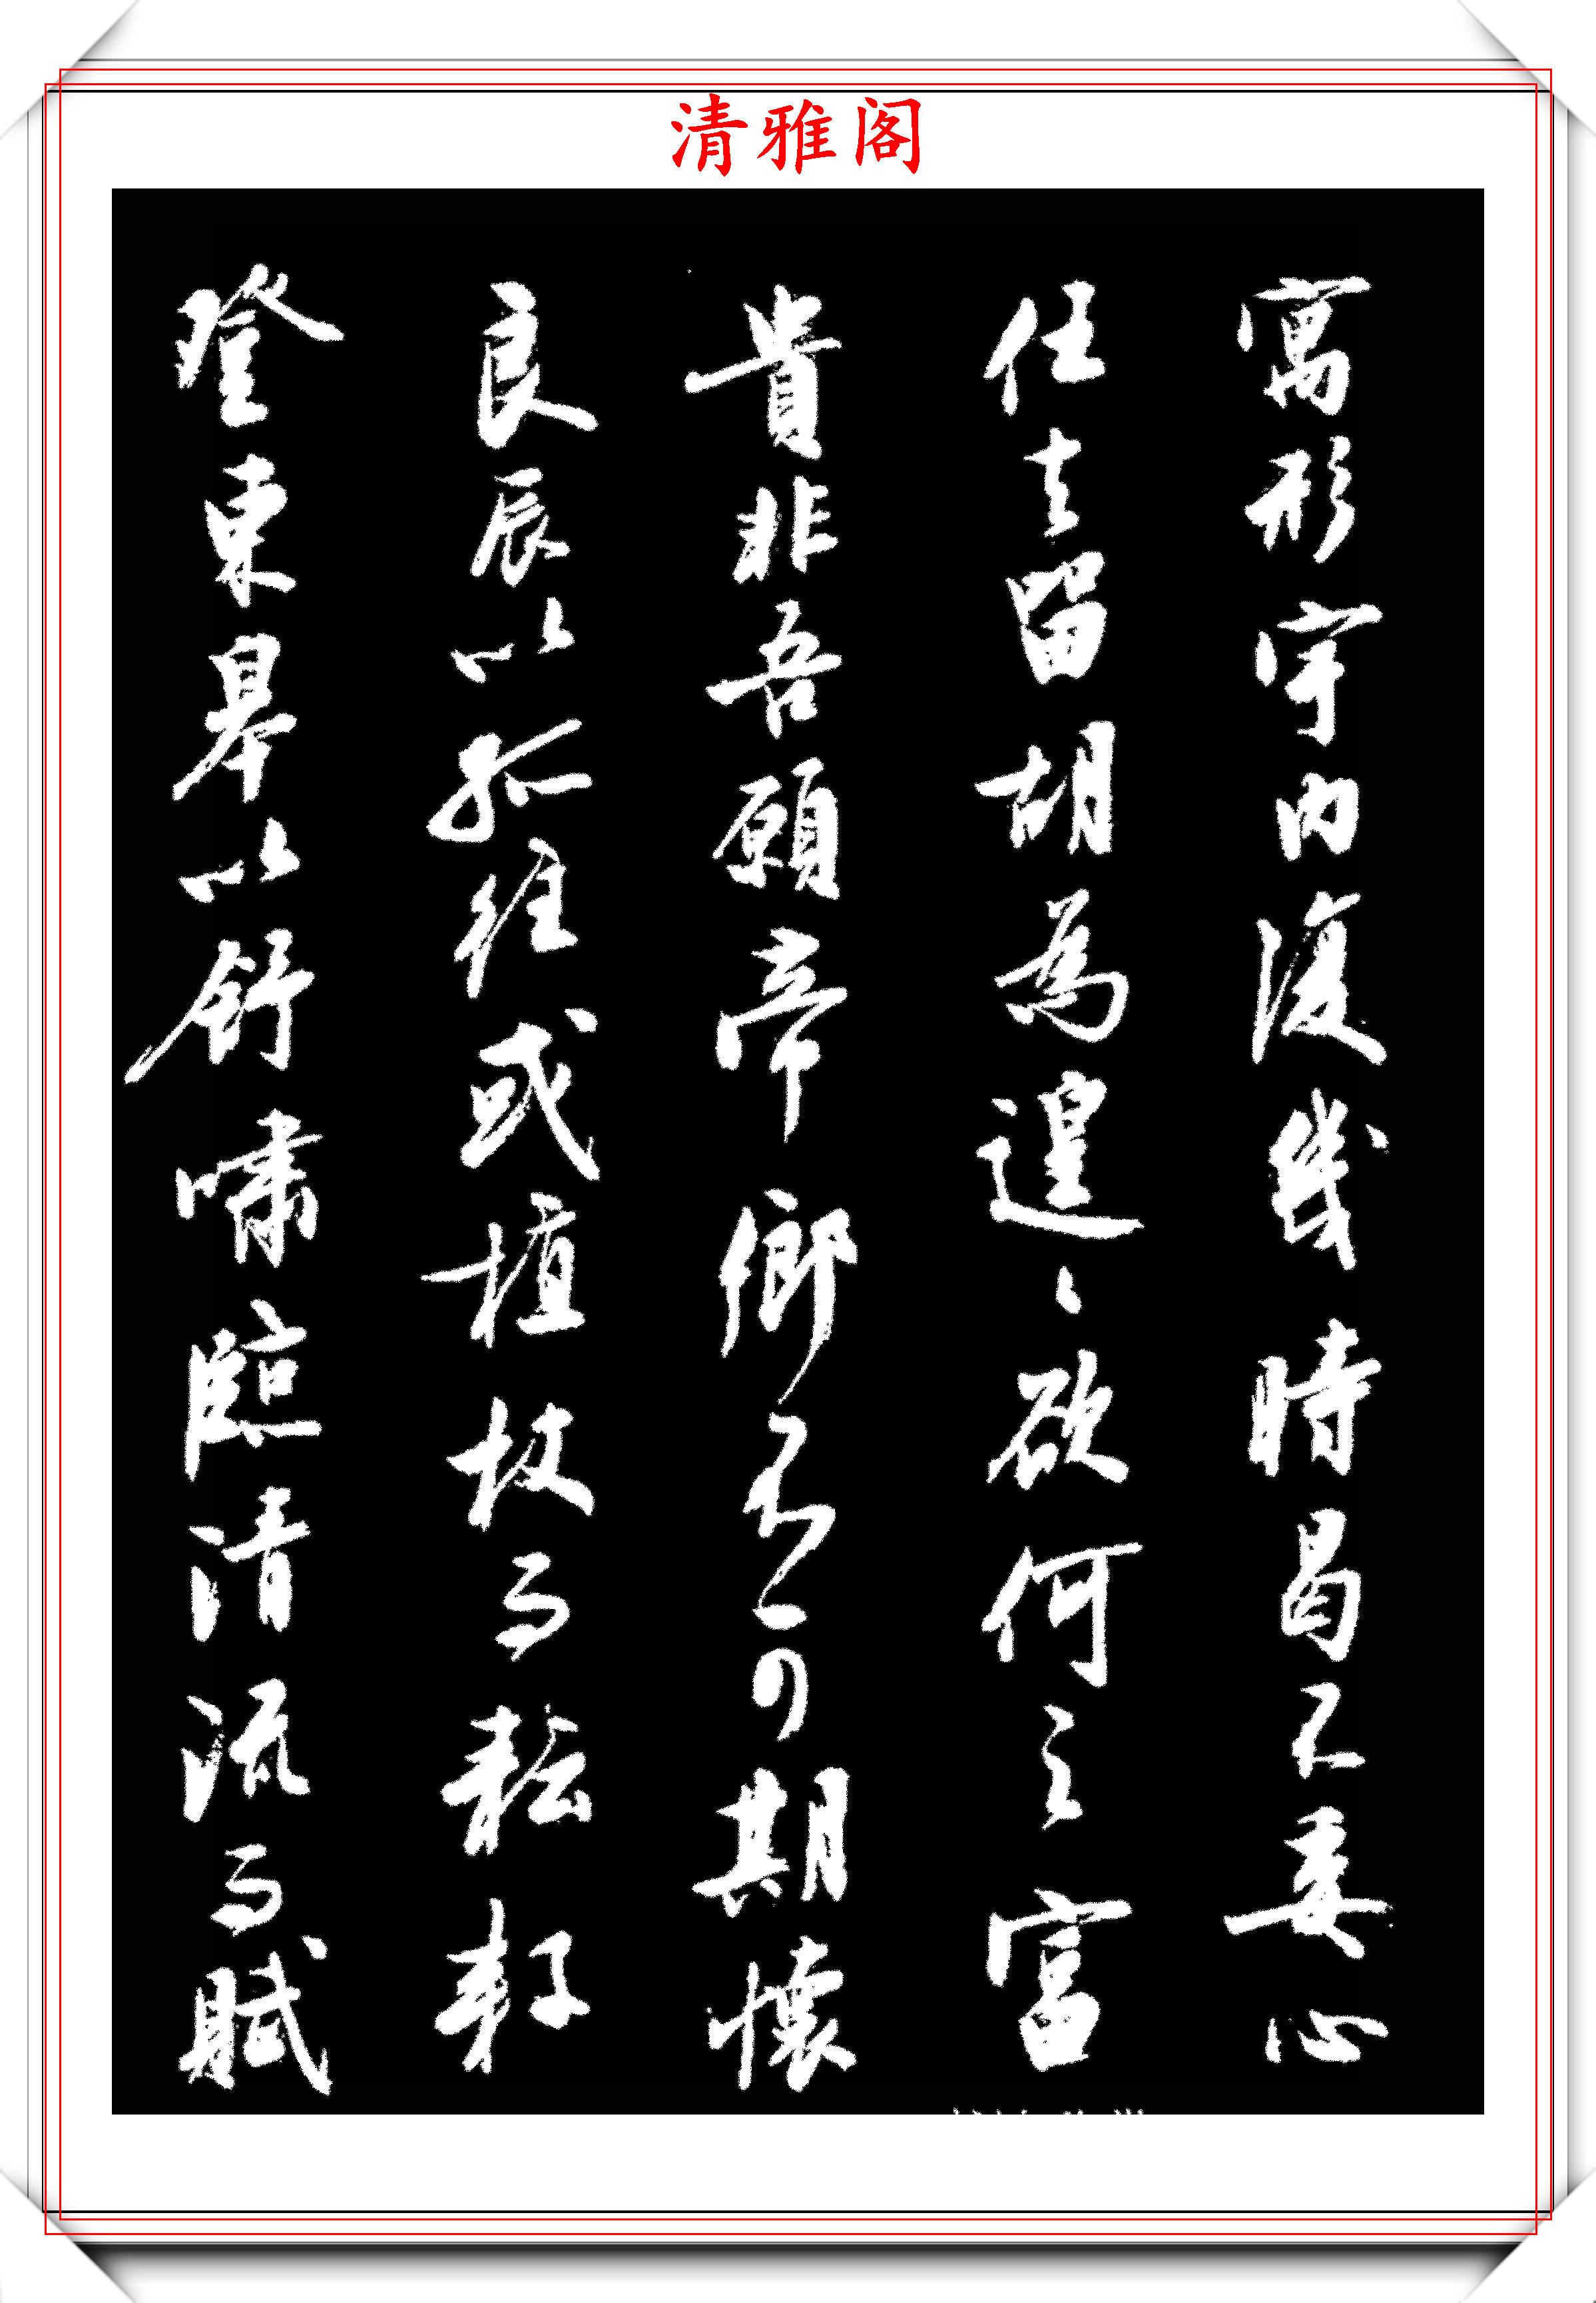 清雅阁
寓形宇内復幾時曷不委心
任去留胡為遑〻欲何之富
貴非吾願帝鄉不可期懷
良辰以孤往或植杖而耘耔
登東皋以舒嘯臨清流而賦